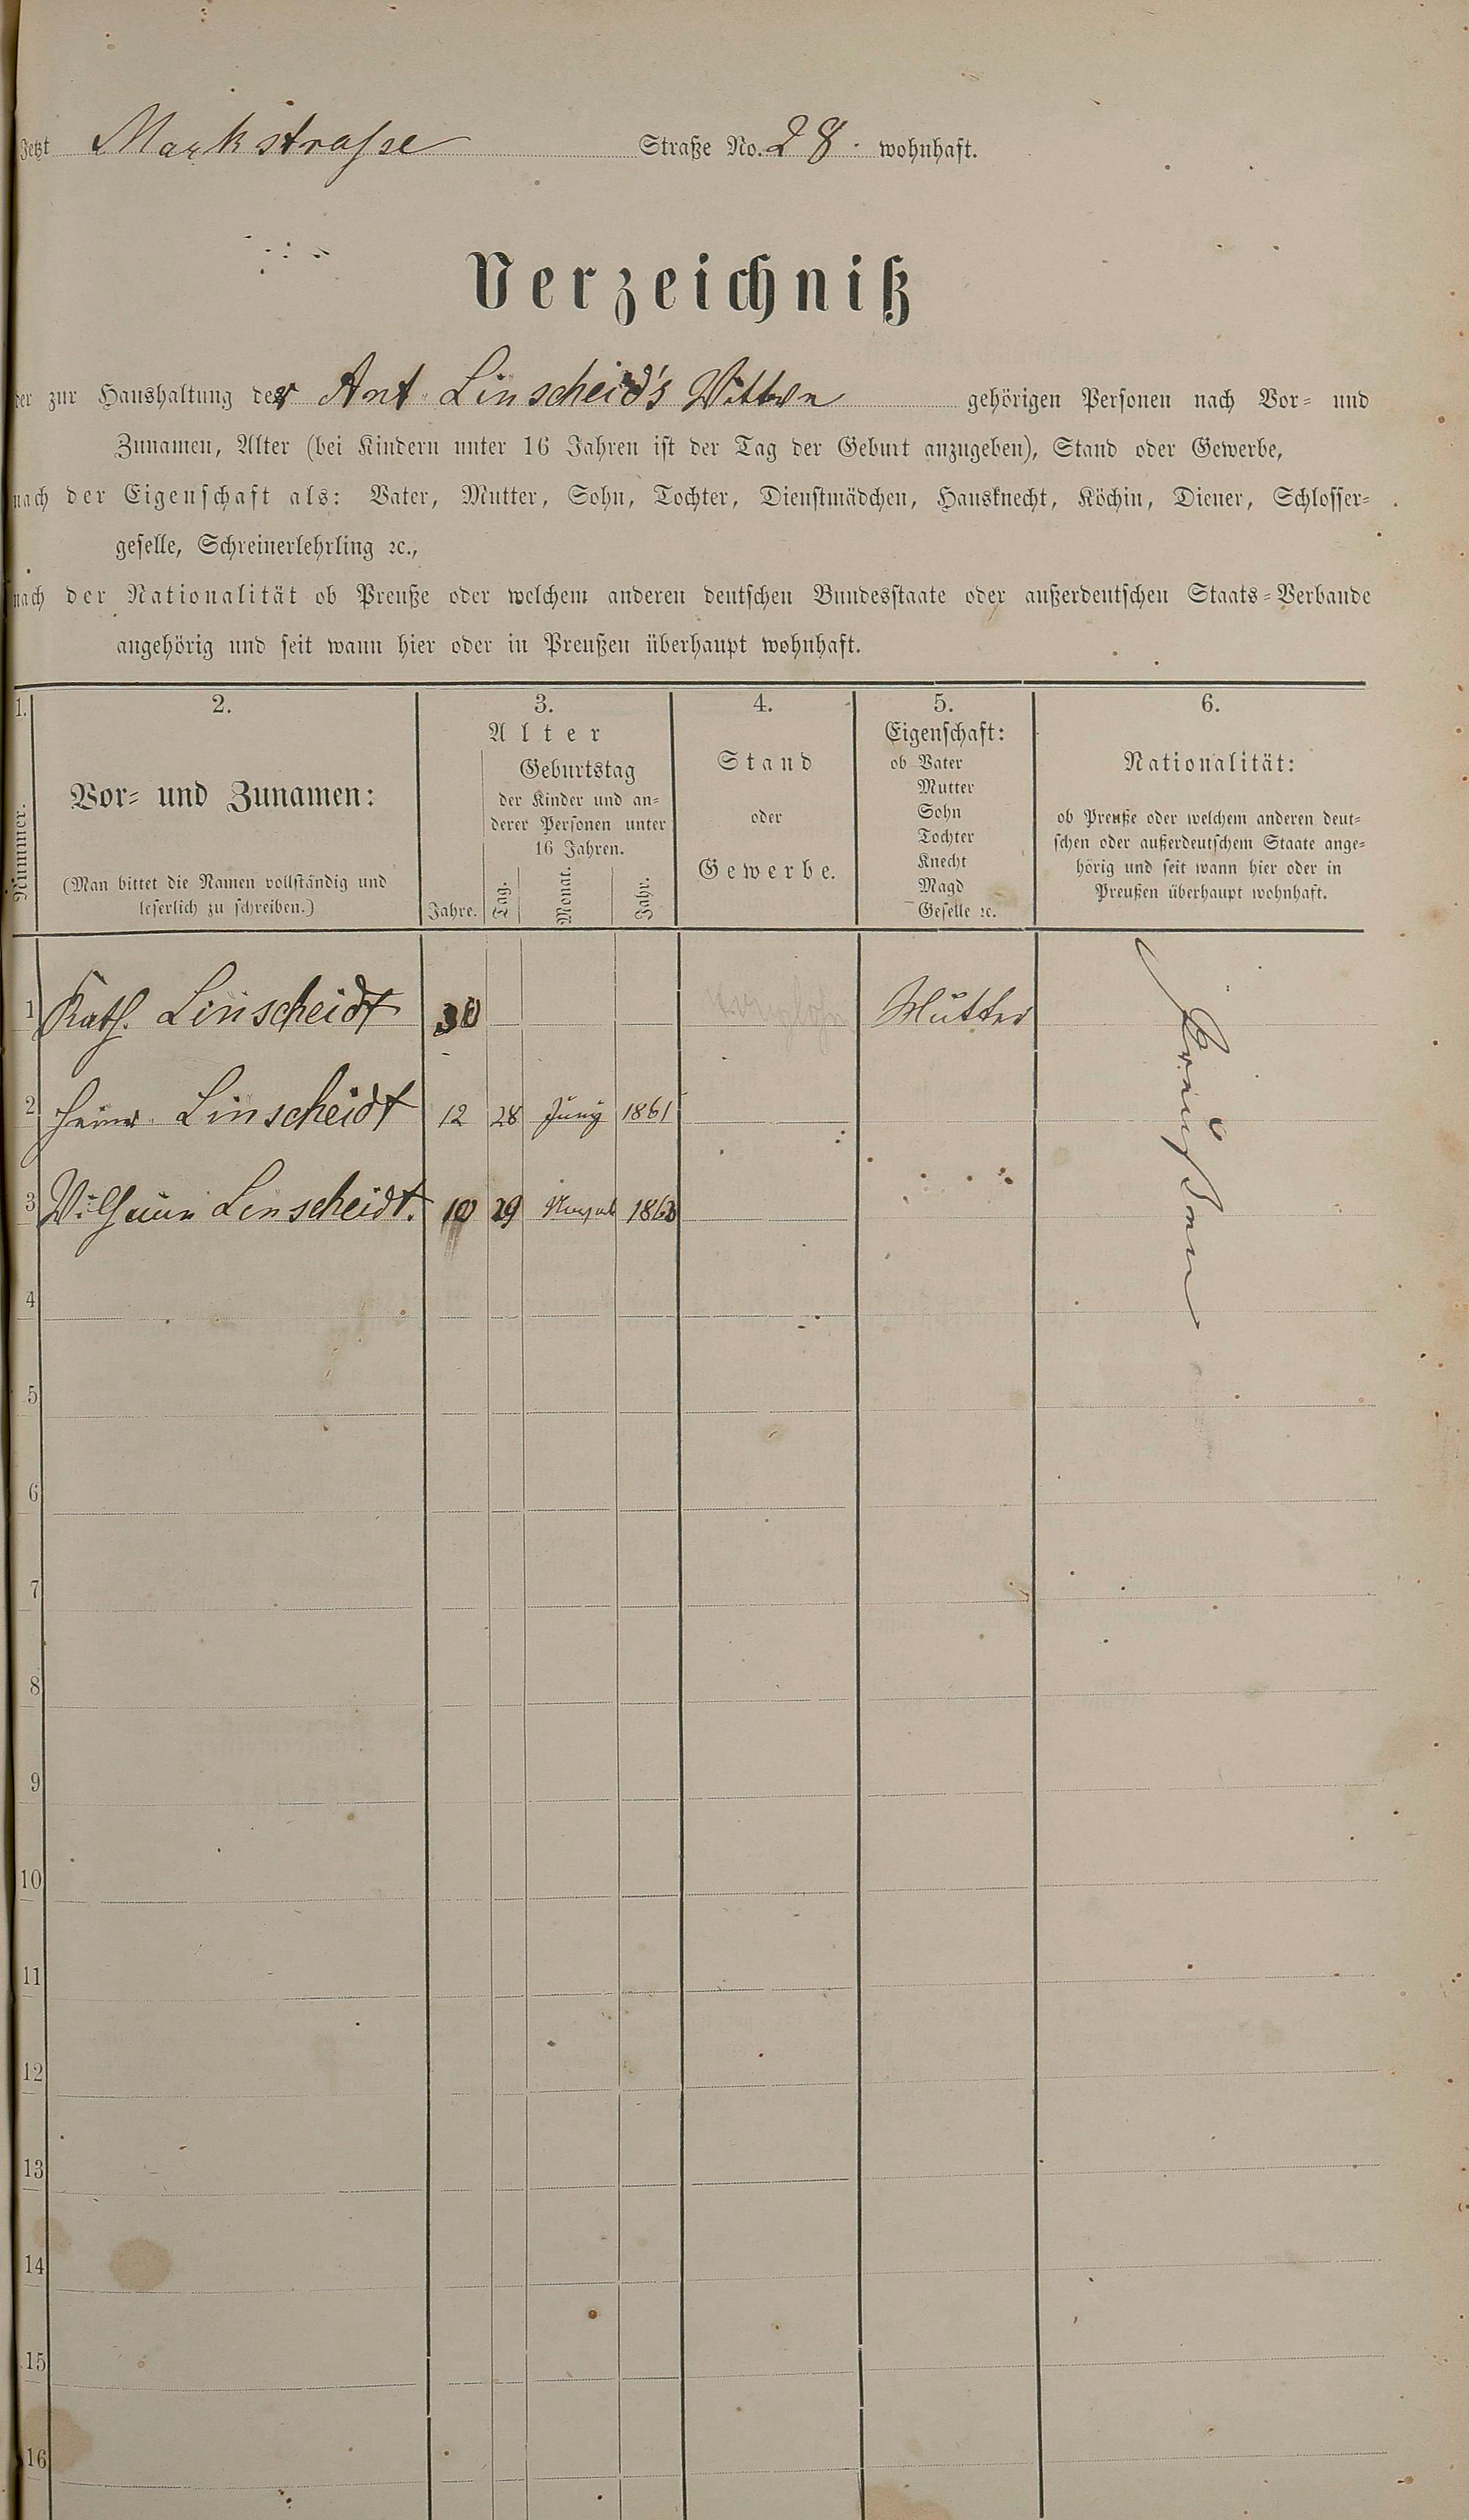 Jetzt Markstraße Straße No. 28. wohnhaft.
Verzeichniß
der zur Haushaltung der Ant. Linscheid's Wittwe gehörigen Personen nach Vor= und
Zunamen, Alter (bei Kindern unter 16 Jahren ist der Tag der Geburt anzugeben), Stand oder Gewerbe,
nach der Eigenschaft als: Vater, Mutter, Sohn, Tochter, Dienstmädchen, Hausknecht, Köchin, Diener, Schlosser=
geselle, Schreinerlehrling ꝛc.,
nach der Nationalität ob Preuße oder welchem anderen deutschen Bundesstaate oder außerdeutschen Staats=Verbande
angehörig und seit wann hier oder in Preußen überhaupt wohnhaft.
1. 2. 3. 4. 5. 6.
Nummer.
Vor= und Zunamen:
(Man bittet die Namen vollständig und
leserlich zu schreiben.)
Alter
Jahre.
Geburtstag
der Kinder und an=
derer Personen unter
16 Jahren.
Tag. Monat. Jahr.
Stand
oder
Gewerbe.
Eigenschaft:
ob Vater
Mutter
Sohn
Tochter
Knecht
Magd
Geselle ꝛc.
Nationalität:
ob Preuße oder welchem anderen deut=
schen oder außerdeutschem Staate ange=
hörig und seit wann hier oder in
Preußen überhaupt wohnhaft.
1 Kath. Linscheidt 30 Mutter
2 Heinr. Linscheidt 12 28 Juny 1861
3 Linscheidt. 10 29 1863
Preußen
4
5
6
7
8
9
10
11
12
13
14
15
16